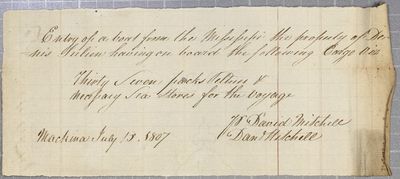 Entry of a boat from the Missisipi the property of De
nis Julien having on board the following Cargo Viz
Thirty Seven packs Peltries &
necessary Sea Stores for the voyage
Mackina July 13. 1807
David Mitchell
Dan Mitchell